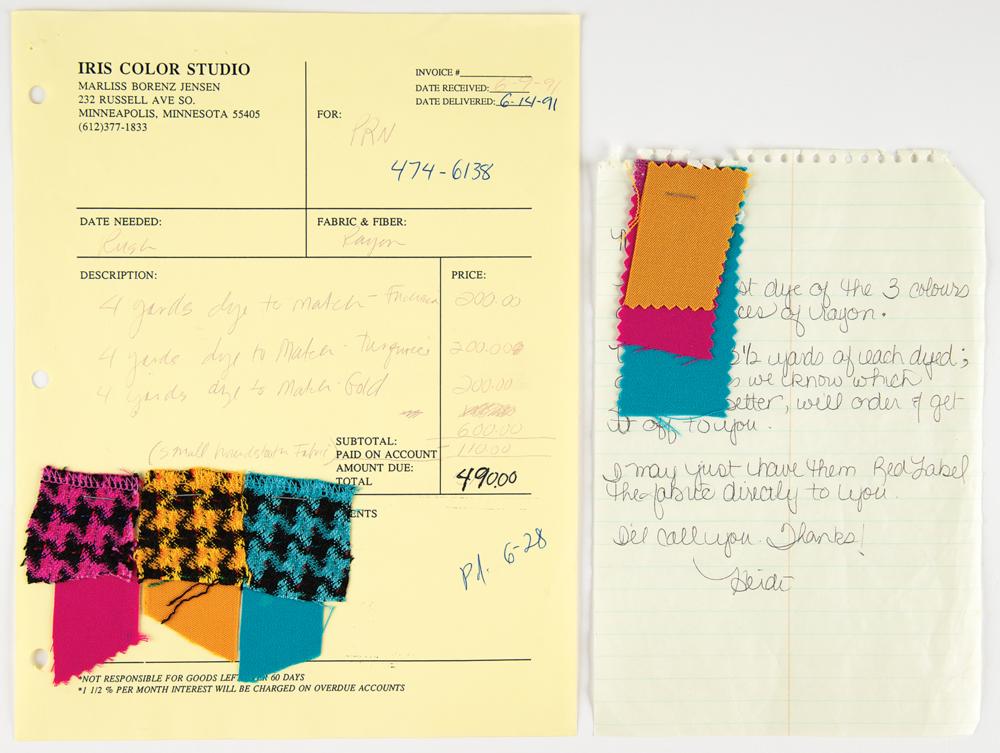 IRIS COLOR STUDIO
MARLISS BORENZ JENSEN
232 RUSSELL AVE SO.
MINNEAPOLIS, MINNESOTA 55405
(612)377-1833
FOR:
PRN
474-6138
INVOICE #
DATE RECEIVED: 6-7-91
DATE DELIVERED: 6-14-91
DATE NEEDED:
Rush
FABRIC & FIBER:
Rayon
DESCRIPTION:
PRICE:
4 yards dye to match - 200.00
4 yards dye to Match - Turquoise 200.00
4 yards dye to Match - Gold 200.00
SUBTOTAL: 600.00
(small houndstooth Fabric) PAID ON ACCOUNT 110.00
AMOUNT DUE:
TOTAL 490.00
ENTS
Pd. 6-28
*NOT RESPONSIBLE FOR GOODS LEFT 60 DAYS
*1 1/2 % PER MONTH INTEREST WILL BE CHARGED ON OVERDUE ACCOUNTS
st dye of the 3 colours
ces of rayon.
2 1/2 yards of each dyed;
we know which
better, will order & get
it off to you.
I may just have them Red Label
the fabric directly to you.
I'll call you. Thanks!
Heidi